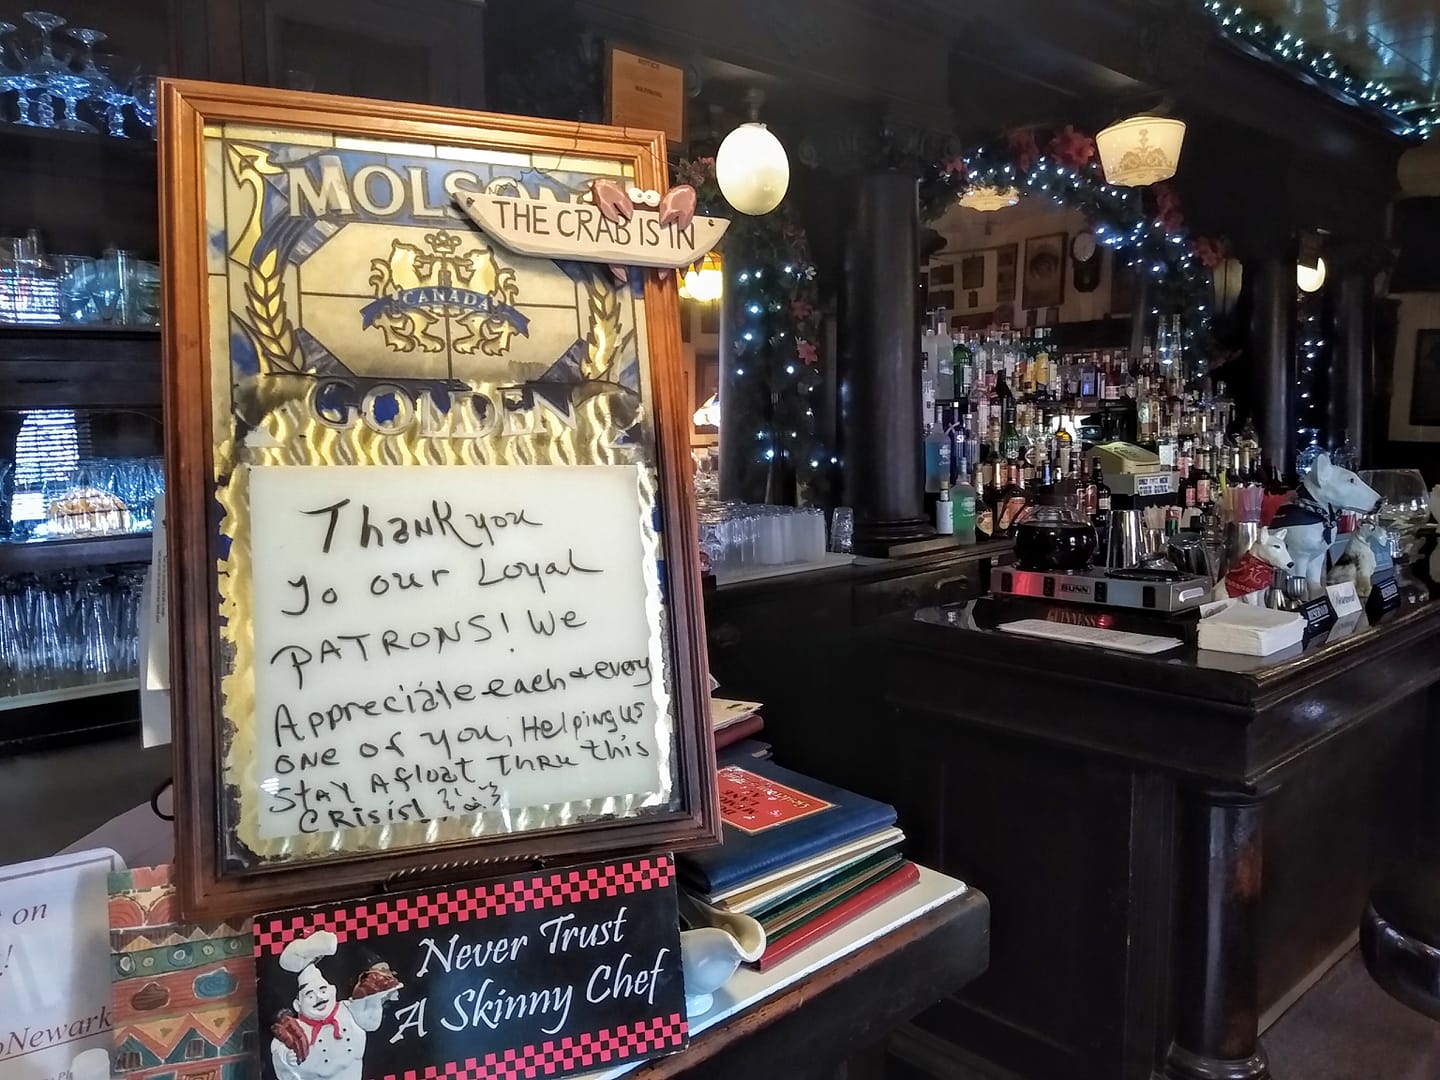 NOTICE
WARNING
MOLSON
THE CRAB IS IN
CANADA
GOLDEN
Thank you
To our Loyal
PATRONS! We
Appreciate each & every
one of you, Helping us
Stay Afloat Thru this
CRisis!
BUNN
GUINNESS
RESERVED
on
!
oNewark
Never Trust
A Skinny Chef